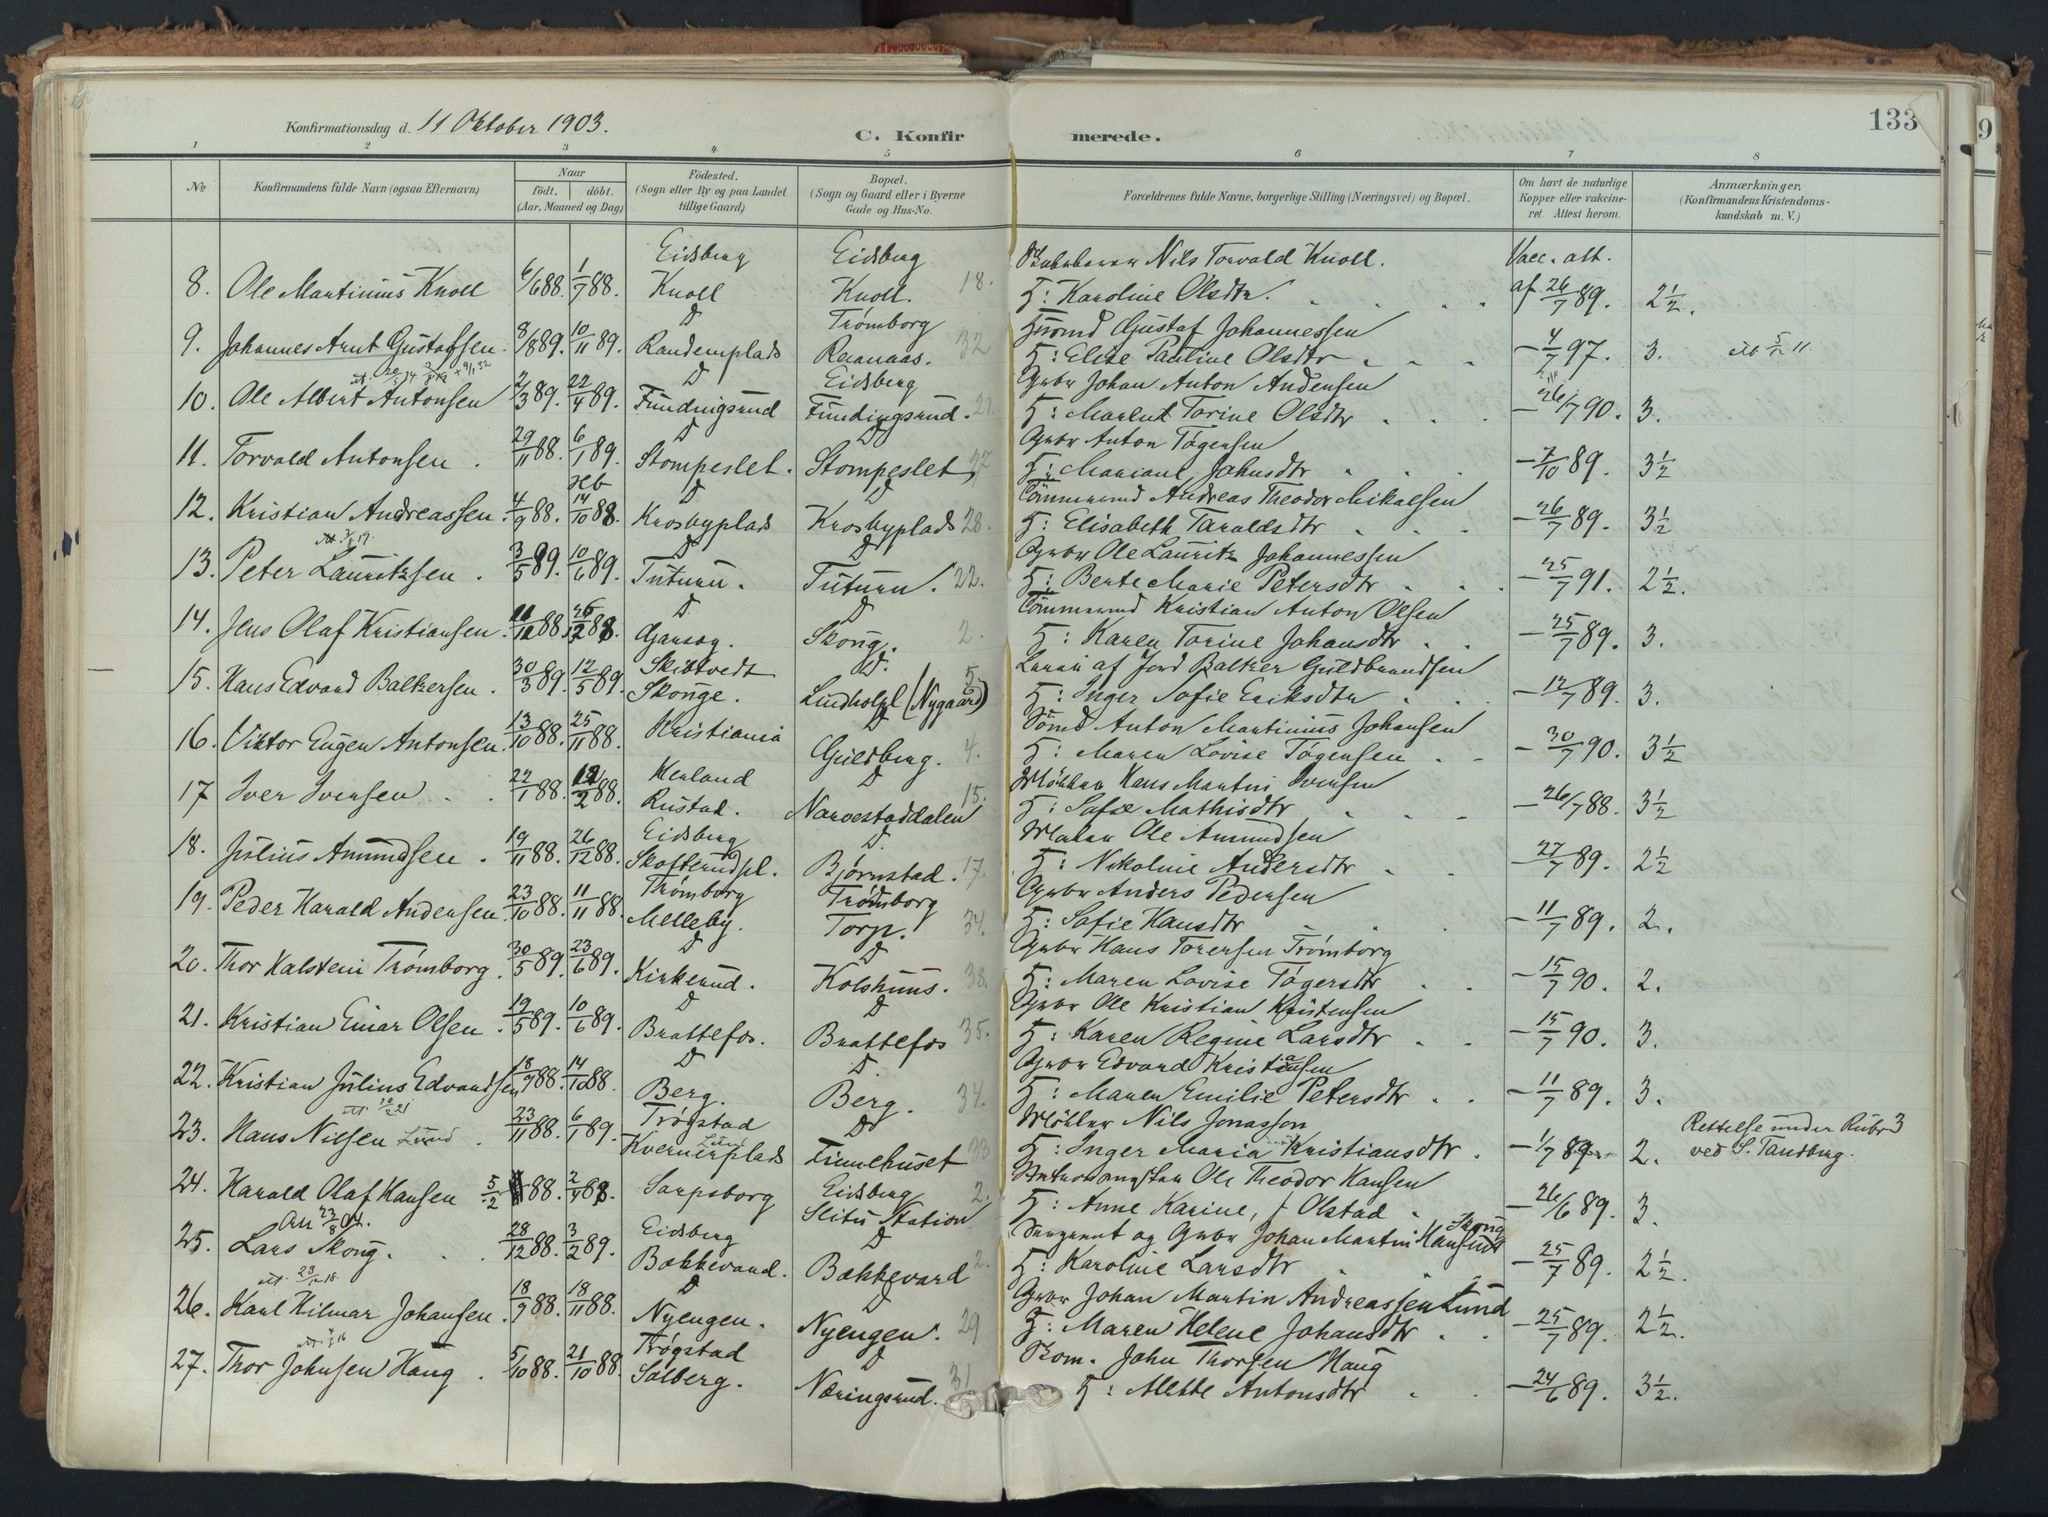 Konfirmationsdag d. 11 Oktober 1903.
C. Konfirmerede.
133
1 2 3 4 5 6 7 8
No
Konfirmandens fulde Navn (ogsaa Efternavn)
Naar
födt. döbt.
(Aar, Maaned og Dag)
Födested.
(Sogn eller By og paa Landet
tillige Gaard)
Bopæl.
(Sogn og Gaard eller i Byerne
Gade og Hus-No.
Forældrenes fulde Navne, borgerlige Stilling (Næringsvei) og Bopæl.
Om havt de naturlige
Kopper eller vakcine-
ret. Attest herom.
Anmærkninger,
(Konfirmandens Kristendoms-
kundskab m. V.)
Eidsberg Eidsberg Nils Torvald Knoll. Vacc. att.
8. Ole Martinius Knoll 6/6 88. 1/7 88. Knoll Knoll. 18. H: Karoline Olsdtr. af 26/7 89. 2 1/2.
D Trømborg Husmd Gustaf Johannessen
9. Johannes Arnt Gustafsen 8/8 89. 10/11 89. Randemplads Raanaas. 32 H: Elise Pauline Olsdtr – 4/7 97. 3. att 5/12 11.
D Eidsberg Grbr Johan Anton Andersen
10. Ole Albert Antonsen 2/3 89. 22/4 89. Fundingsrud Fundingsrud. 21. H: Marent Torine Olsdtr – 26/7 90. 3.
D D Grbr Anton Tøgersen
11. Torvald Antonsen. 29/11 88. 6/1 89. Stompeslet. Stompeslet 27 H: Mariane Johnsdtr – 7/10 89. 3 1/2
Hb D D Tømmermd Andreas Theodor Mikalsen
12. Kristian Andreassen. 4/9 88. 14/10 88. Krosbyplads Krosbyplads 28. H: Elisabeth Taraldsdtr – 26/7 89. 3 1/2
D D Grbr Ole Lauritz Johannessen
13. Peter Lauritzsen. 3/5 89. 10/6 89. Tuturu. Tuturu. 22. H: Berte Marie Petersdtr – 25/7 91. 2 1/2.
D D Tømmermd Kristian Anton Olsen
14. Jens Olaf Kristiansen. 88. 26/12 88. Skoug. 2. H: Karen Torine Johansdtr – 25/7 89. 3.
Skiptvedt D. af Jord Baltzer Guldbrandsen
15. Hans Edvard Baltzersen. 30/3 89. 12/5 89. Skouge. Lindholpl (Nygaard) 5. H: Inger Sofie Eriksdtr – 12/7 89. 3.
D Anton Martinius Johansen
16. Viktor Eugen Antonsen. 13/10 88. 25/11 88. Kristiania Guldberg. 4. H: Maren Lovise Tøgersen – 30/7 90. 3 1/2
Herland D Møller Hans Martin Iversen
17 Iver Iversen. 22/1 88. 12/2 88. Rustad. Narvestaddalen 15. H: Sofie Mathisdtr – 26/7 88. 3 1/2
Eidsberg D. Maler Ole Amundsen
18. Julius Amundsen. 19/11 88. 26/12 88. Skofterudpl. Bjørnstad. 17. H: Nikoline Andersdtr – 27/7 89. 2 1/2
Trømborg Trømborg Grbr Anders Pedersen
19. Peder Harald Andersen. 23/10 88. 11/11 88. Melleby. Torp. 34. H: Sofie Hansdtr – 11/7 89. 2.
D D Grbr Hans Torersen Trømborg
20. Thor Kalstein Trømborg. 30/5 89. 23/6 89. Kirkerud. Kolshuus. 38. H: Maren Lovise Tøgersdtr – 15/7 90. 2.
D D Grbr Ole Kristian Kristensen
21. Kristian Einar Olsen. 19/5 89. 10/6 89. Brattefos. Brattefos 35. H: Karen Regine Larsdtr – 15/7 90. 3.
D D. Grbr Edvard Kristiansen
22. Kristian Julius Edvardsen 18/9 88. 14/10 88. Berg. Berg. 34. H: Maren Emilie Petersdtr – 11/7 89. 3.
Trøgstad D Møller Nils Jonasson Rettelse under Rubr 3
23. Hans Nilsen Lund. 23/11 88. 6/1 89. Kvernerplads Finnehuset 33 H: Inger Maria Kristiansdtr. – 1/7 89. 2. ved S. Tandberg.
Ole Theodor Hansen
24. Harald Olaf Hansen 5/2 88. 2/4 88. Sarpsborg Eidsberg 2. H: Anne Karine, f Olstad – 26/6 89. 3.
Slitu Station
Eidsberg D Sergeant og Grbr Johan Martin Hansen Skoug
25. Lars Skoug. 28/12 88. 3/2 89. Bakkevard. Bakkevard 2. H: Karoline Larsdtr – 25/7 89. 2 1/2.
D D Grbr Johan Martin Andreassen Lund
26. Karl Hilmar Johansen. 18/9 88. 18/11 88. Nyengen. Nyengen. 29 H: Maren Helene Johansdtr – 25/7 89. 2 1/2.
Trøgstad D John Thorsen Haug
27. Thor Johnsen Haug. 5/10 88. 21/10 88. Solberg. Næringsrud. 31 H: Mette Antonsdtr – 24/6 89. 3 1/2.